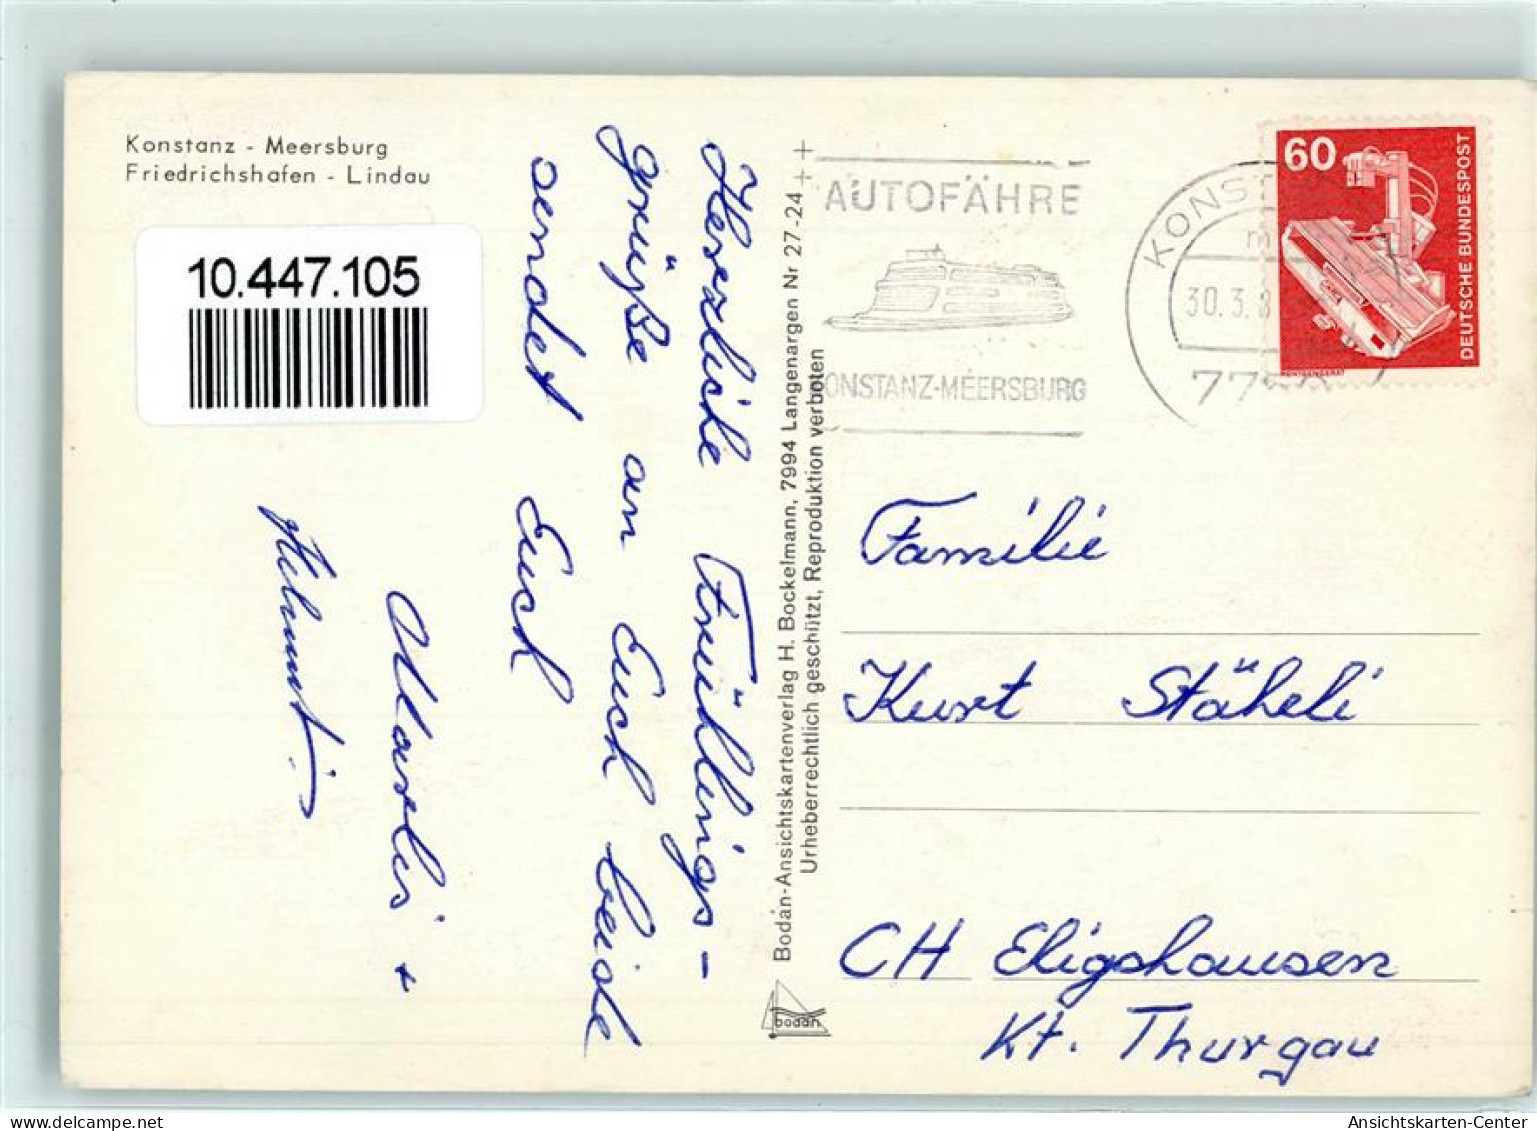 Konstanz - Meersburg
Friedrichshafen - Lindau
10.447.105
Herzliche Frühlings-
grüße an Euch beide
sendet Euch
Marlis +
Helmut
Bodan-Ansichtskartenverlag H. Bockelmann, 7994 Langenargen Nr 27-24
Urheberrechtlich geschützt, Reproduktion verboten
bodan
AUTOFÄHRE
KONSTANZ-MEERSBURG
30.3.8
60
DEUTSCHE BUNDESPOST
Familie
Kurt Stäheli
CH Eligshausen
Kt. Thurgau
delcampe.net
Ansichtskarten-Center